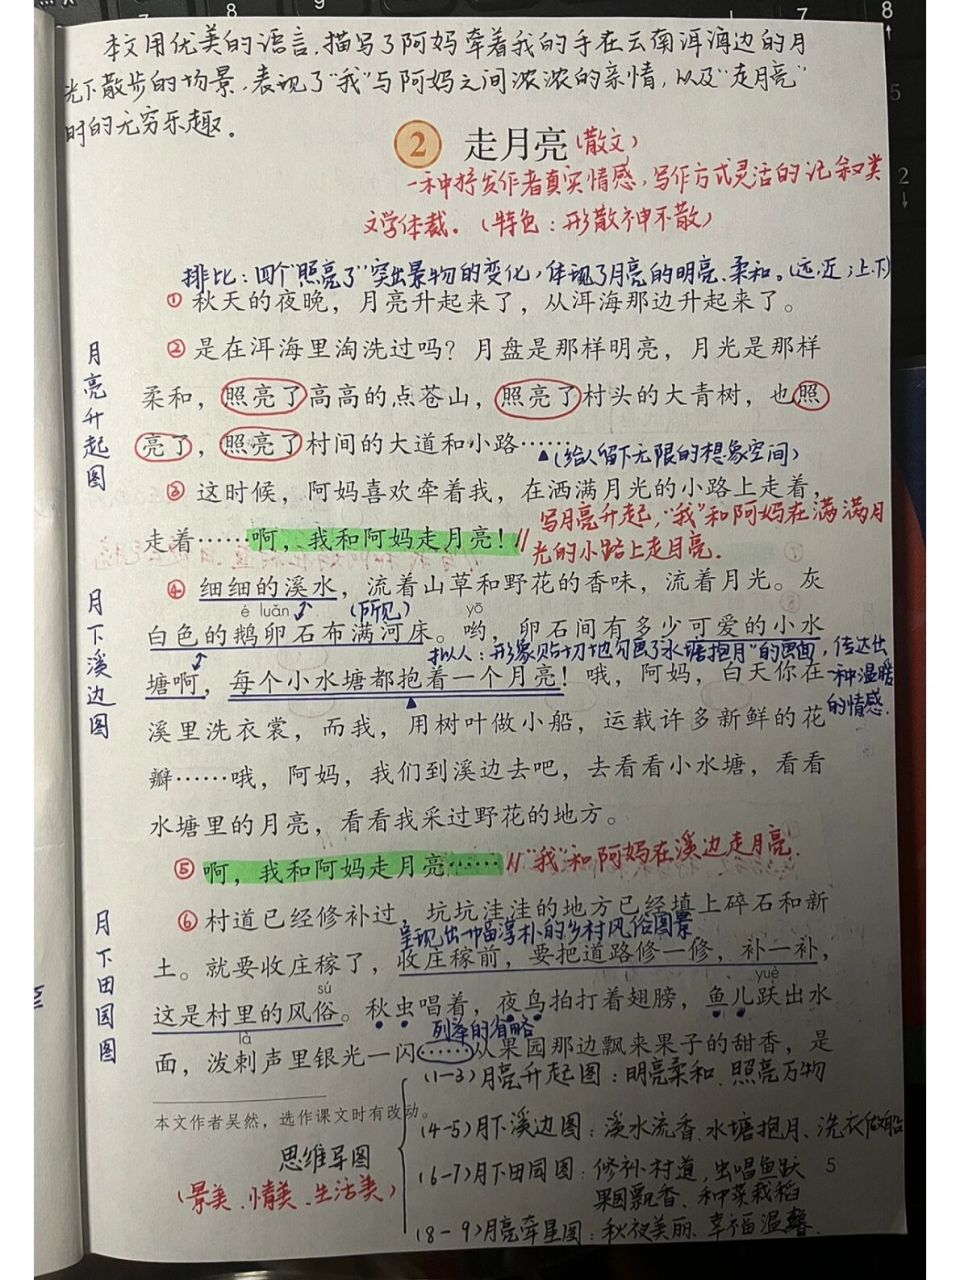 本文用优美的语言,描写了阿妈牵着我的手在云南洱海边的月
光下散步的场景,表现了“我”与阿妈之间浓浓的亲情,以及“走月亮”
时的无穷乐趣。
2 走月亮(散文)
一种抒发作者真实情感,写作方式灵活的记叙类
文学体裁。(特色:形散神不散)
排比:四个“照亮了”突出景物的变化,体现了月亮的明亮、柔和。(远、近;上、下)
① 秋天的夜晚,月亮升起来了,从洱海那边升起来了。
② 是在洱海里淘洗过吗?月盘是那样明亮,月光是那样
柔和,照亮了高高的点苍山,照亮了村头的大青树,也照
亮了,照亮了村间的大道和小路……
▲(给人留下无限的想象空间)
月亮升起图
③ 这时候,阿妈喜欢牵着我,在洒满月光的小路上走着,
走着……啊,我和阿妈走月亮!//
写月亮升起,“我”和阿妈在满满月
光的小路上走月亮.
④ 细细的溪水,流着山草和野花的香味,流着月光。灰
é luǎn (所见) yō
白色的鹅卵石布满河床。哟,卵石间有多少可爱的小水
拟人:形象贴切地勾画了“水塘抱月”的画面,传达出
一种温暖
的情感.
塘啊,每个小水塘都抱着一个月亮!哦,阿妈,白天你在
月下溪边图
溪里洗衣裳,而我,用树叶做小船,运载许多新鲜的花
瓣……哦,阿妈,我们到溪边去吧,去看看小水塘,看看
水塘里的月亮,看看我采过野花的地方。
⑤ 啊,我和阿妈走月亮……//“我”和阿妈在溪边走月亮.
⑥ 村道已经修补过,坑坑洼洼的地方已经填上碎石和新
呈现出一幅淳朴的乡村风俗图景
土。就要收庄稼了,收庄稼前,要把道路修一修,补一补,
sú yuè
这是村里的风俗。秋虫唱着,夜鸟拍打着翅膀,鱼儿跃出水
月下田园图
là 列举的省略
面,泼剌声里银光一闪……从果园那边飘来果子的甜香,是
本文作者吴然,选作课文时有改动。
思维导图
(景美、情美、生活美)
(1-3)月亮升起图:明亮柔和、照亮万物
(4-5)月下溪边图:溪水流香、水塘抱月、洗衣做船
(6-7)月下田园图:修补村道,虫唱鱼跃
果园飘香、种菜栽稻
(8-9)月亮牵星图:秋夜美丽、幸福温馨.
5